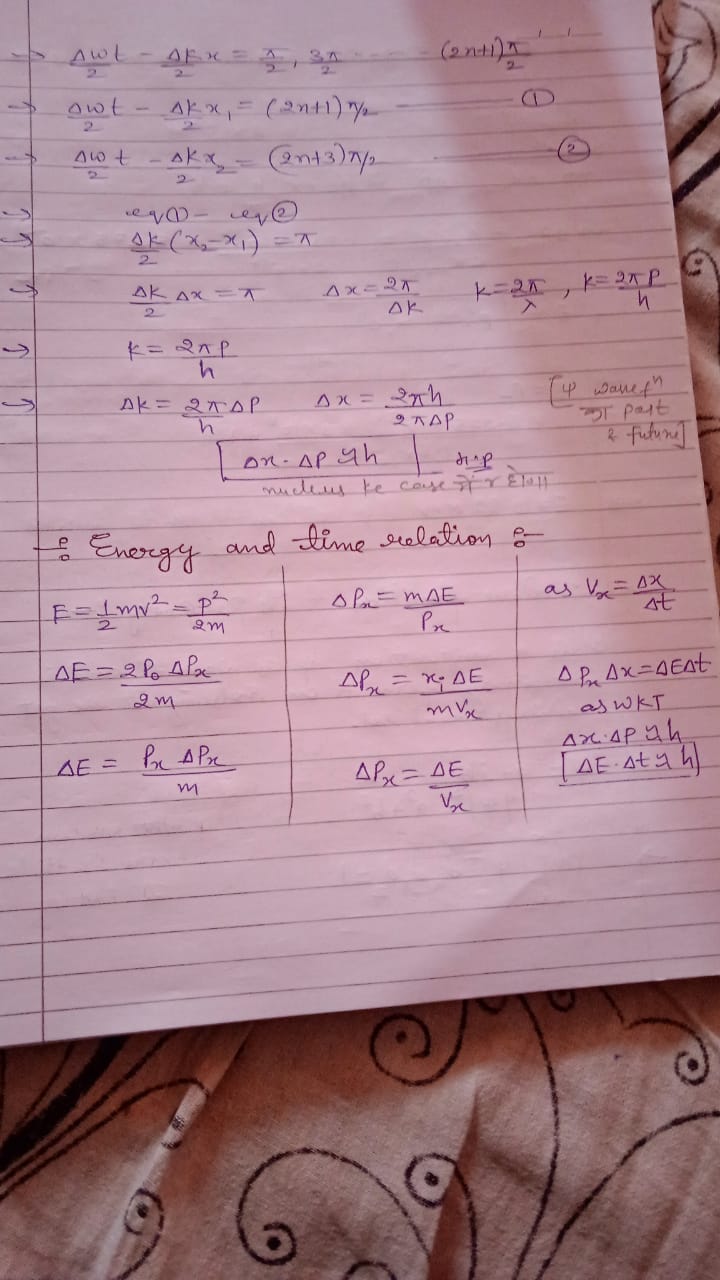 → Δwt/2 - Δkx/2 = π/2, 3π/2 ------ (2n+1)π/2
→ Δwt/2 - Δkx₁/2 = (2n+1)π/2 ——— ①
→ Δwt/2 - Δkx₂/2 = (2n+3)π/2 ——— ②
→ eq① - eq②
→ Δk/2 (x₂-x₁) = π
→ Δk/2 Δx = π Δx = 2π/Δk k = 2π/λ , k = 2πP/h
→ k = 2πP/h
→ Δk = 2πΔP/h Δx = 2πh/2πΔP
[ψ wave fn
का past
& future]
[Δx. ΔP ≥ h]
nucleus ke case में r होगा
Energy and time relation
E = 1/2 mv² = p²/2m
ΔE = 2P₀ ΔPx/2m
ΔE = Px ΔPx/m
ΔPx = mΔE/Px
ΔPx = ΔE/mVx
ΔPx = ΔE/Vx
as Vx = Δx/Δt
ΔPx Δx = ΔEΔt
as WKT
Δx. ΔP ≥ h
[ΔE. Δt ≥ h]